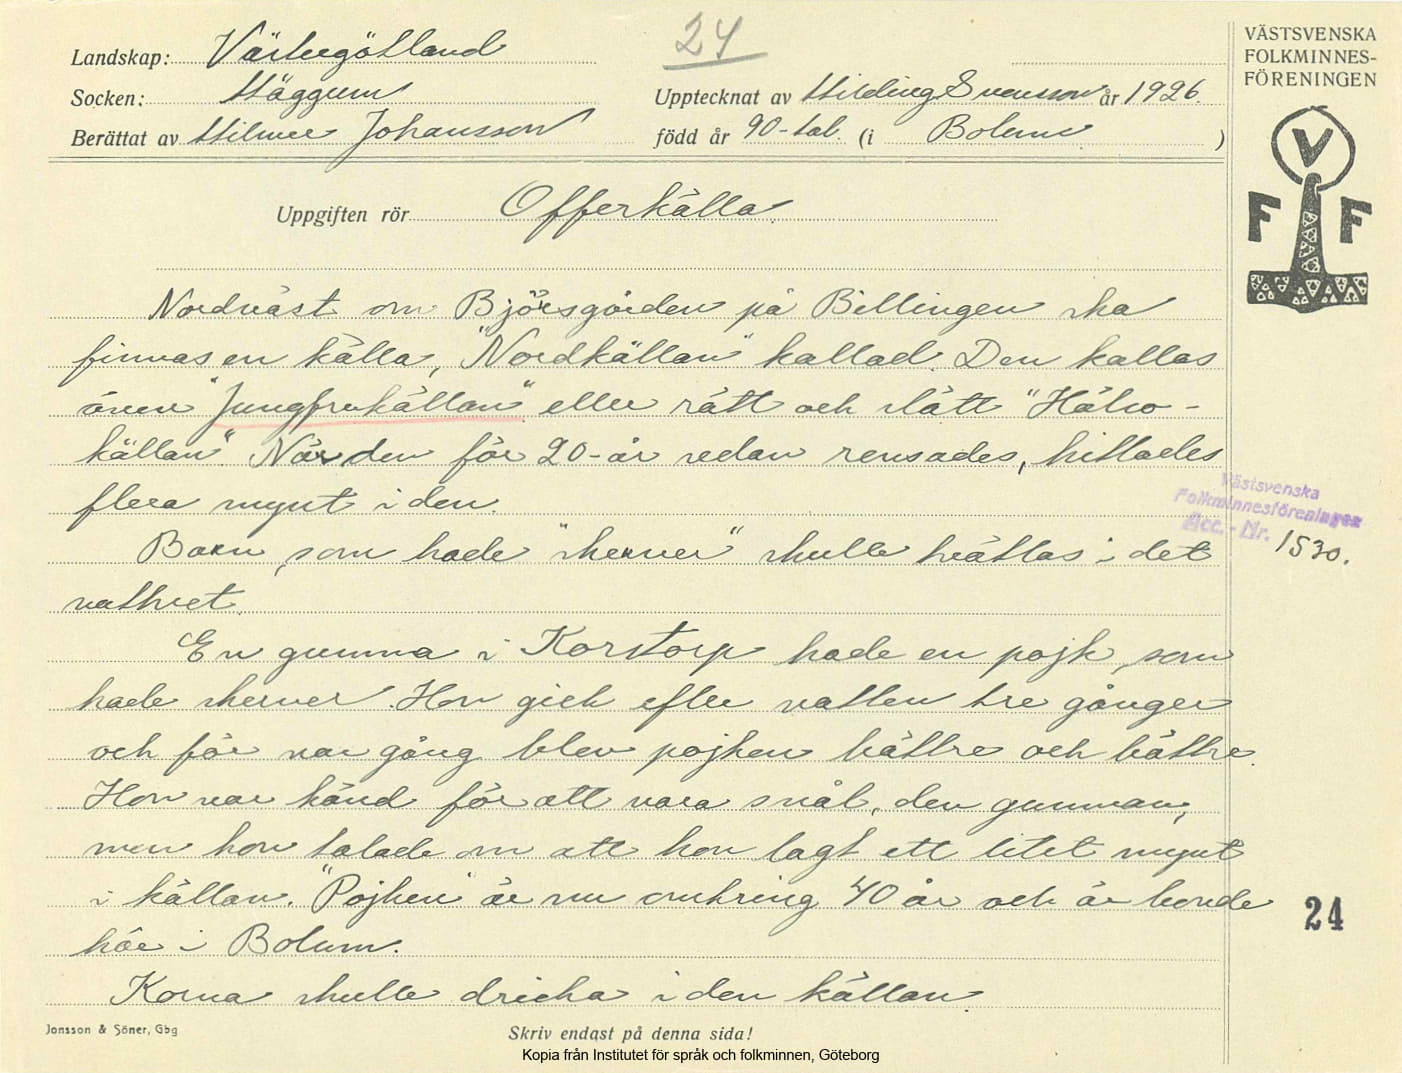 24
VÄSTSVENSKA
FOLKMINNES-
FÖRENINGEN
Landskap: Västergötland
Socken: Häggum
Upptecknat av Hilding Svensson år 1926.
Berättat av Hilmer Johansson
född år 90-tal. (i Bolum )
V
F F
Uppgiften rör Offerkälla.
Nordväst om Björsgården på Billingen ska
finnas en källa, "Nordkällan" kallad. Den kallas
även "Jungfrukällan" eller rätt och slätt "Hälso-
källan". När den för 20-år sedan rensades, hittades
flera mynt i den.
Barn, som hade "skerver" skulle tvättas i det
vattnet.
En gumma i Korstorp hade en pojk, som
hade skerver. Hon gick efter vatten tre gånger
och för var gång blev pojken bättre och bättre.
Hon var känd för att vara snål, den gumman,
men hon talade om att hon lagt ett litet mynt
i källan. "Pojken" är nu omkring 40 år och är bonde
här i Bolum.
Korna skulle dricka i den källan.
Västsvenska
Folkminnesföreningen
Acc.-Nr. 1530.
24
Jonsson & Söner, Gbg
Skriv endast på denna sida!
Kopia från Institutet för språk och folkminnen, Göteborg